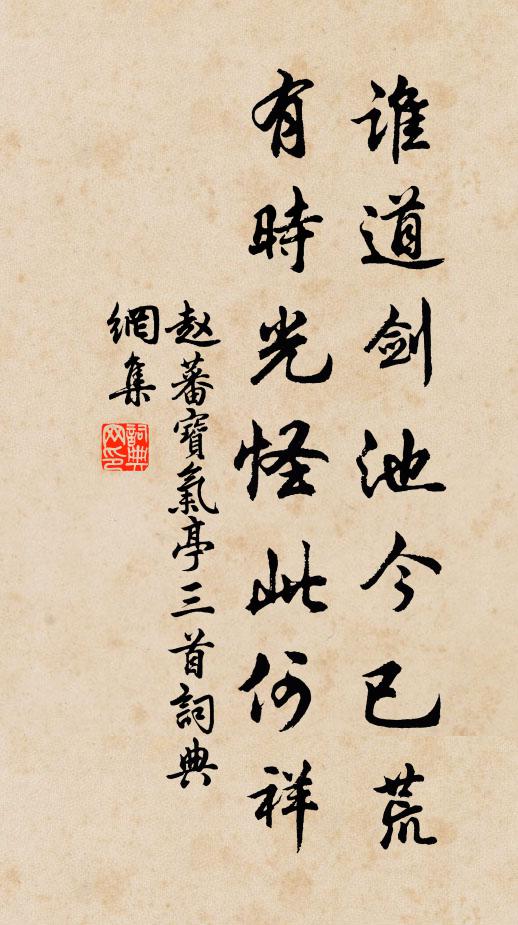 谁道剑池今已荒
有時光怪此何祥
赵蕃寶氣亭三首詞典
網集
詞典網印